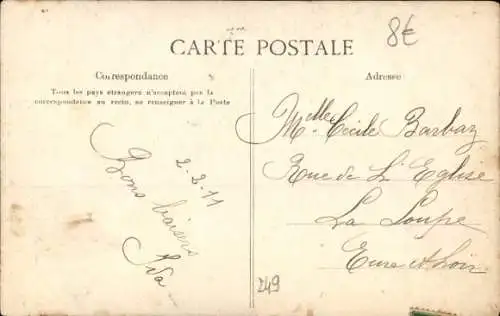 8€
CARTE POSTALE
Correspondance
Tous les pays étrangers n'acceptent pas la
correspondance au recto, se renseigner à la Poste
2-2-11
Bons baisers
Ida
Adresse
Melle Cécile Barbaz
Rue de L'Eglise
La Loupe
Eure et Loir
249